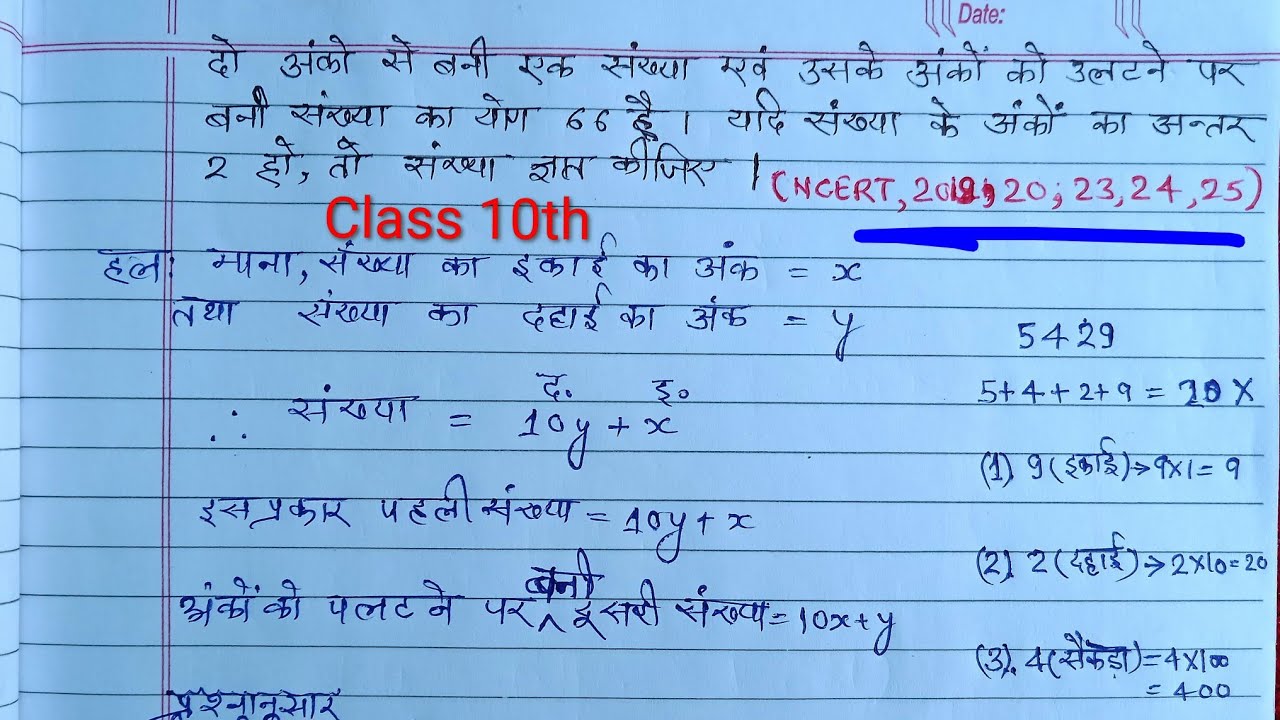 Date:
दो अंको से बनी एक संख्या एवं उसके अंकों को उलटने पर
बनी संख्या का योग 66 है। यदि संख्या के अंकों का अन्तर
2 हो, तो संख्या ज्ञात कीजिए।
(NCERT, 2019, 20; 23, 24, 25)
Class 10th
हल: माना, संख्या का इकाई का अंक = x
तथा संख्या का दहाई का अंक = y
5429
द. इ.
5+4+2+9 = 20 X
∴ संख्या = 10y + x
(1) 9 (इकाई) → 9x1 = 9
इस प्रकार पहली संख्या = 10y + x
(2) 2 (दहाई) → 2x10 = 20
बनी
अंकों को पलटने पर ^ दूसरी संख्या = 10x+y
(3). 4 (सैकड़ा) = 4x100
= 400
प्रश्नानुसार